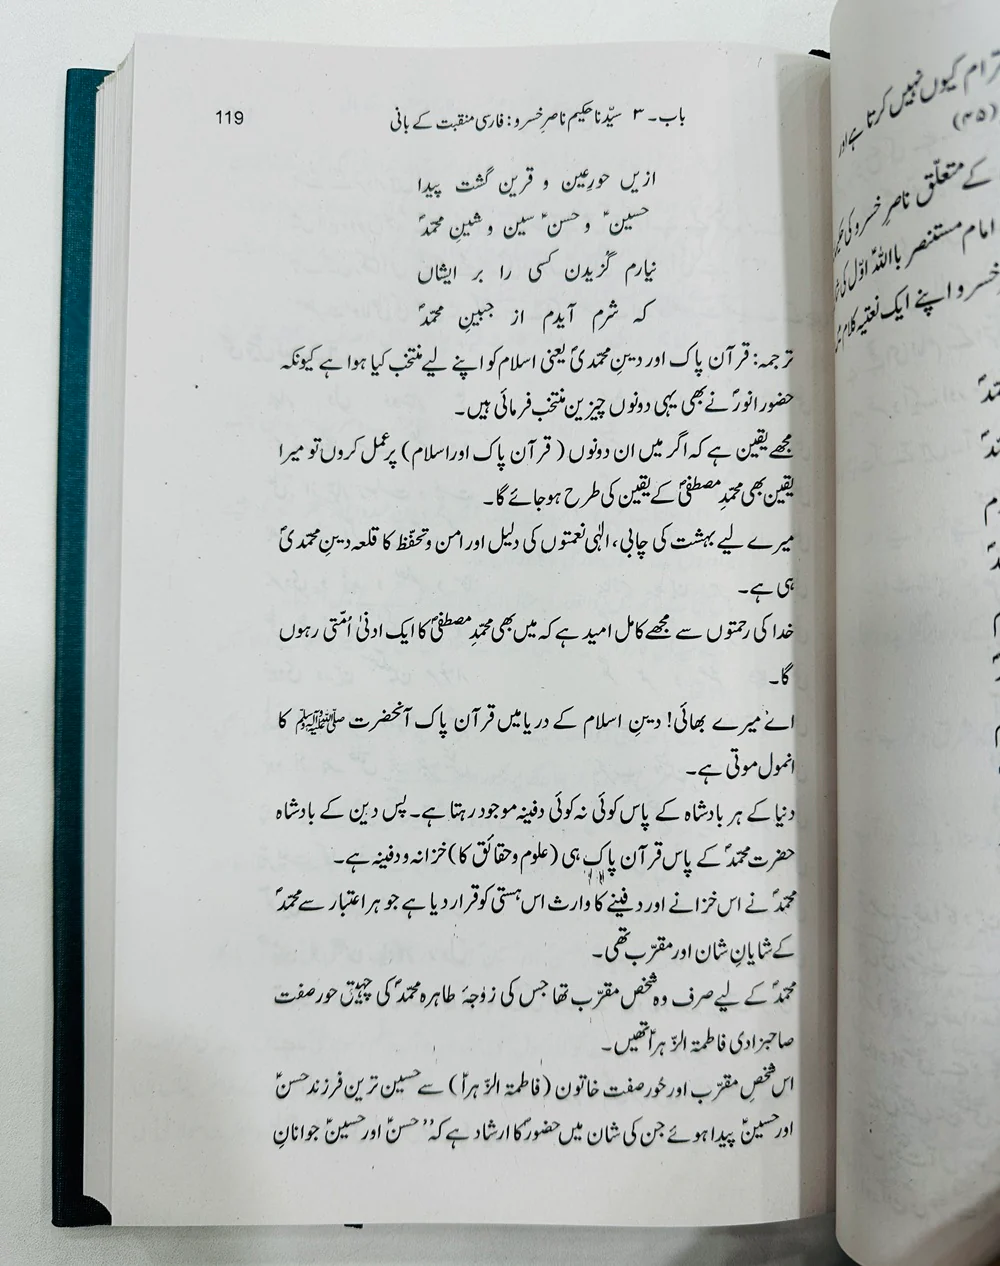 باب۔ ۳ سیّدنا حکیم ناصرِ خسرو: فارسی منقبت کے بانی 119
ازیں حورِعین و قرین گشت پیدا
حسینؑ و حسنؑ سین و شینِ محمدؐ
نیارم گزیدن کسی را بر ایشاں
کہ شرم آیدم از جبینِ محمدؐ
ترجمہ: قرآن پاک اور دینِ محمدیؐ یعنی اسلام کو اپنے لیے منتخب کیا ہوا ہے کیونکہ
حضور انورؐ نے بھی یہی دونوں چیزین منتخب فرمائی ہیں۔
مجھے یقین ہے کہ اگر میں ان دونوں ( قرآن پاک اور اسلام) پر عمل کروں تو میرا
یقین بھی محمدِ مصطفیٰؐ کے یقین کی طرح ہو جائے گا۔
میرے لیے بہشت کی چابی، الٰہی نعمتوں کی دلیل اور امن و تحفّظ کا قلعہ دینِ محمدیؐ
ہی ہے۔
خدا کی رحمتوں سے مجھے کامل امید ہے کہ میں بھی محمدِ مصطفیٰؐ کا ایک ادنیٰ اُمّتی رہوں
گا۔
اے میرے بھائی! دینِ اسلام کے دریا میں قرآن پاک آنحضرت ﷺ کا
انمول موتی ہے۔
دنیا کے ہر بادشاہ کے پاس کوئی نہ کوئی دفینہ موجود رہتا ہے۔ پس دین کے بادشاہ
حضرت محمدؐ کے پاس قرآن پاک ہی (علوم و حقائق کا) خزانہ و دفینہ ہے۔
محمدؐ نے اس خزانے اور دفینے کا وارث اس ہستی کو قرار دیا ہے جو ہر اعتبار سے محمدؐ
کے شایانِ شان اور مقرّب تھی۔
محمدؐ کے لیے صرف وہ شخص مقرّب تھا جس کی زوجۂ طاہرہ محمدؐ کی چہیتی حور صفت
صاحبزادی فاطمۃ الزّہراؑ تھیں۔
اس شخصِ مقرّب اور حُور صفت خاتون (فاطمۃ الزّہراؑ) سے حسین ترین فرزند حسنؑ
اور حسینؑ پیدا ہوئے جن کی شان میں حضورؐ کا ارشاد ہے کہ ’’حسنؑ اور حسینؑ جوانانِ
کیوں نہیں کرتا ہے اور
(۴۵)
کے متعلّق ناصرِ خسرو کی
امام مستنصر باللہؑ اوّل کی
خسرو اپنے ایک نعتیہ کلام